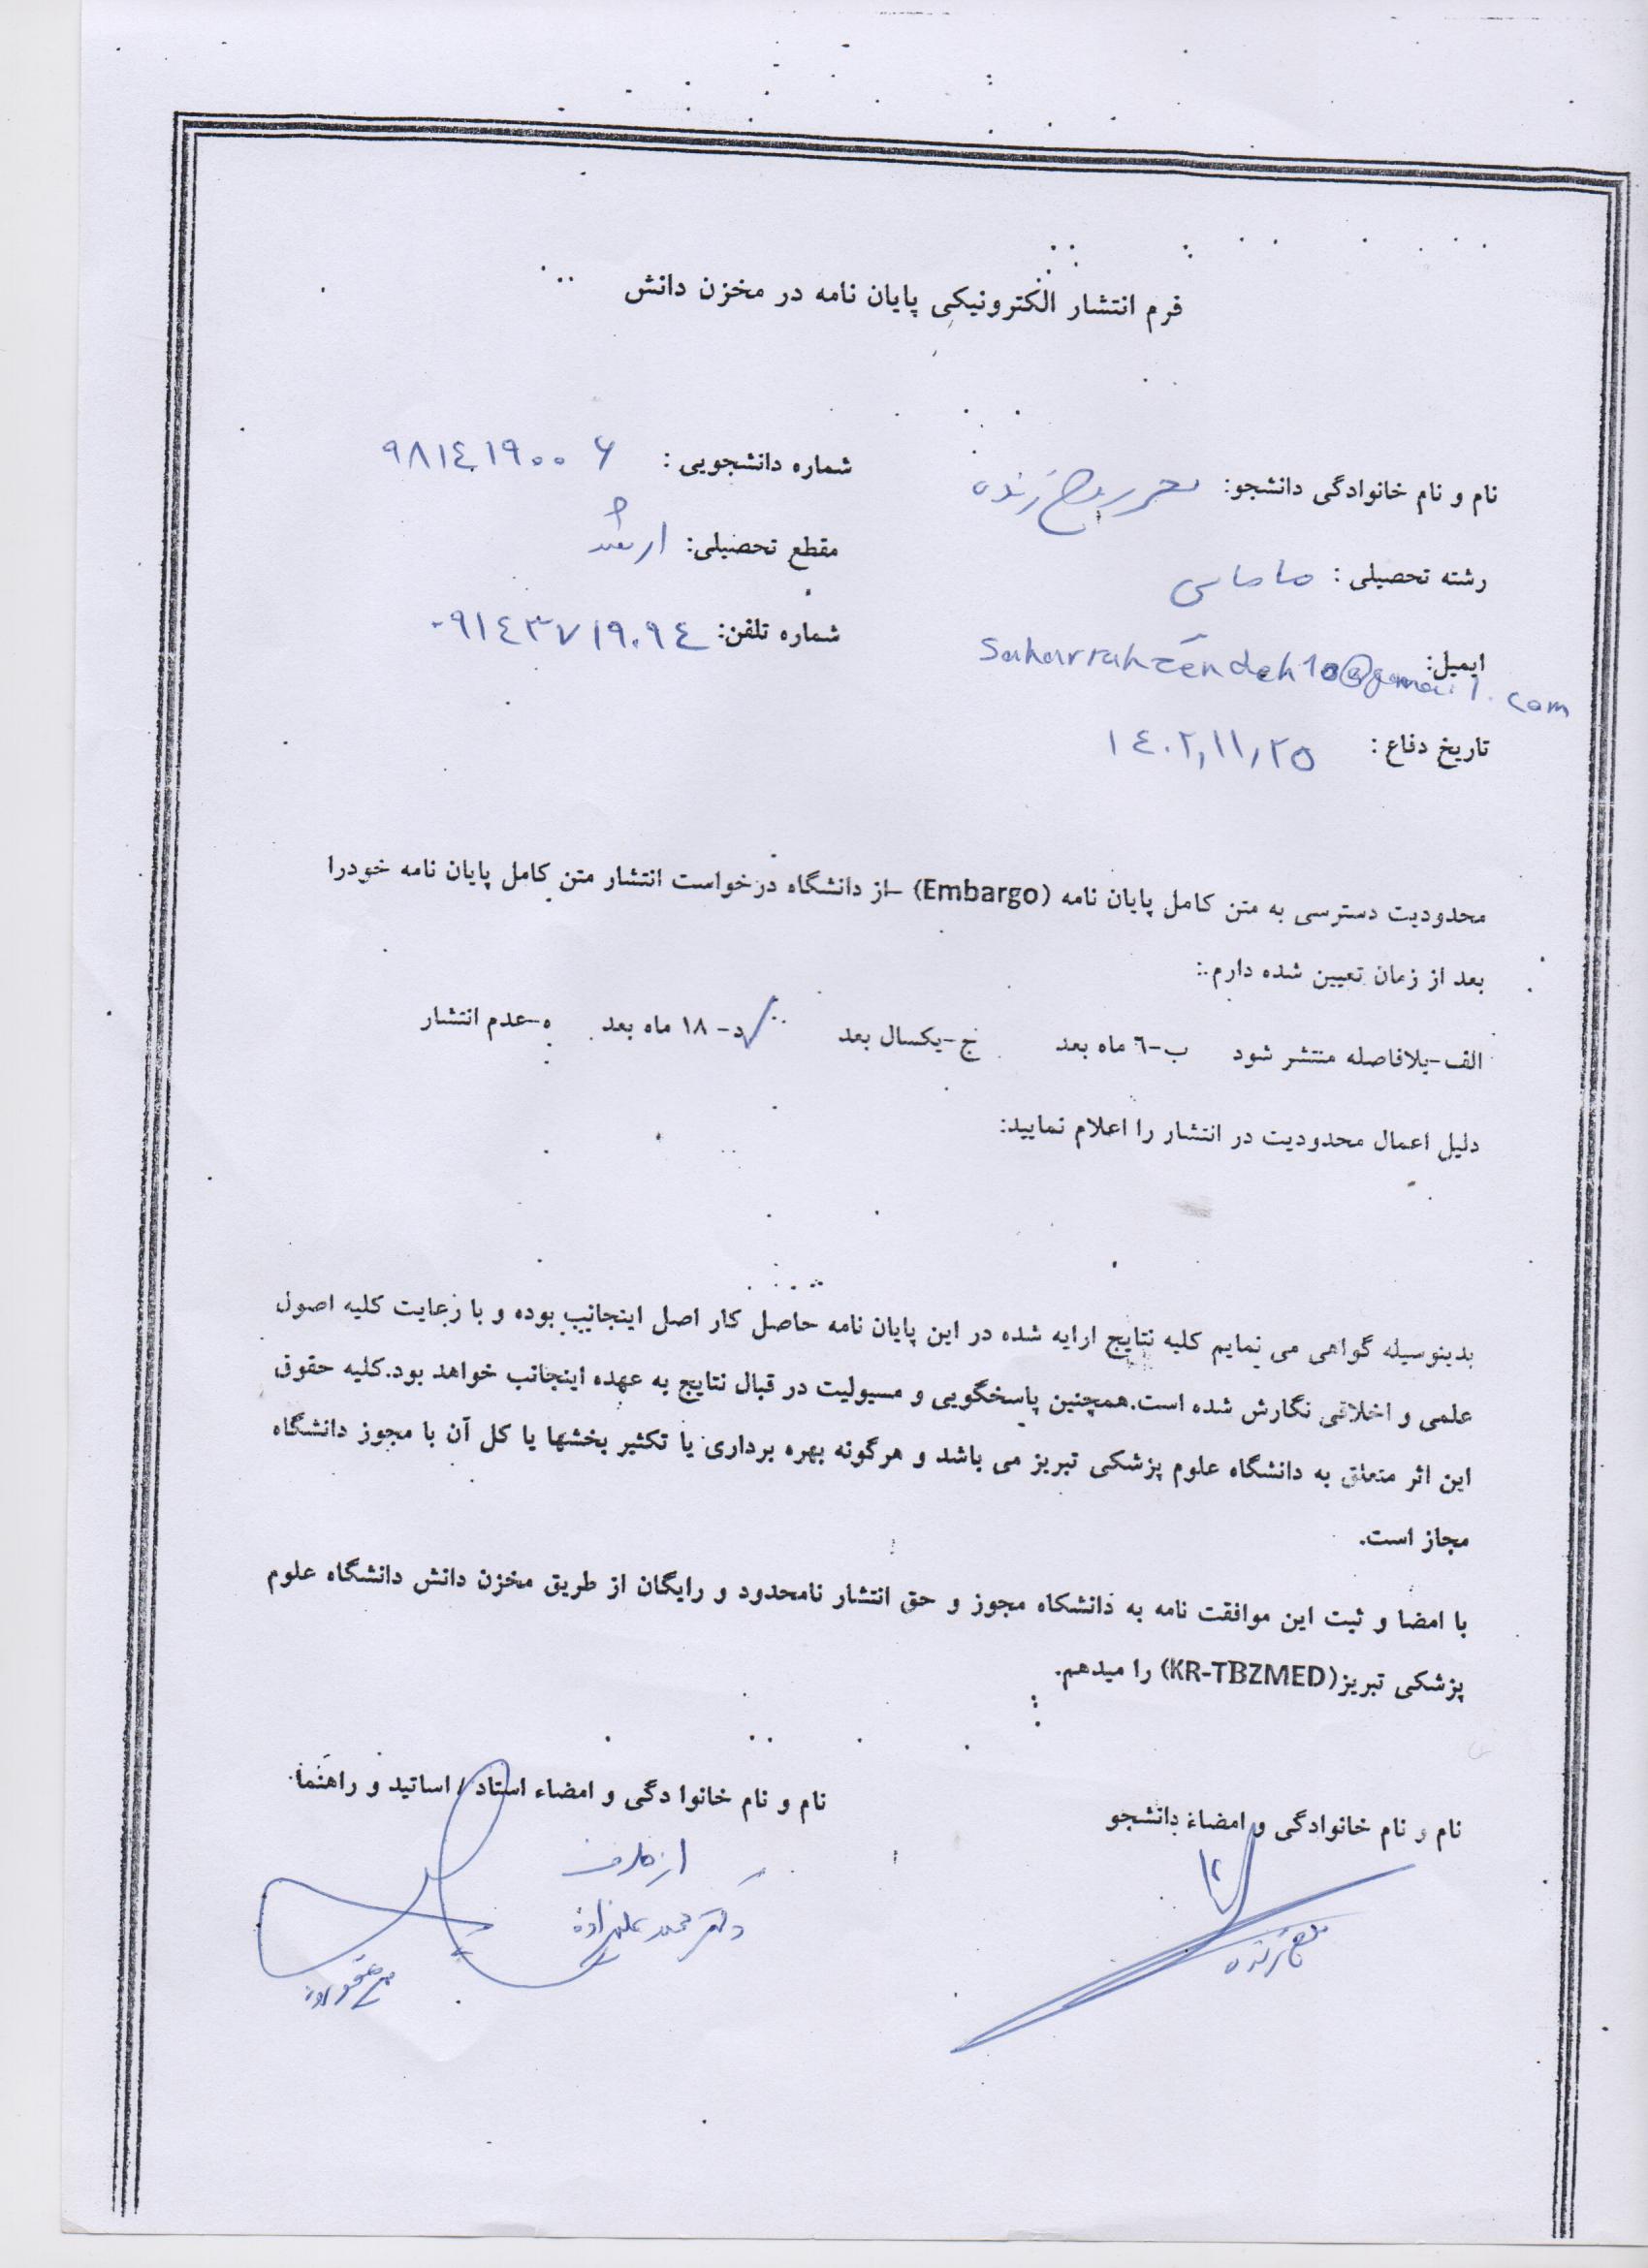 فرم انتشار الکترونیکی پایان نامه در مخزن دانش
نام و نام خانوادگی دانشجو: سحر روح زنده شماره دانشجویی : ۹۸۱٤۱۹۰۰۶
رشته تحصیلی : مامایی مقطع تحصیلی: ارشد
ایمیل: saharrahzendeh10@gmail.com شماره تلفن: ۰۹۱٤۳۷۱۹۰۹٤
تاریخ دفاع : ۱٤۰۲,۱۱,۲۵
محدودیت دسترسی به متن کامل پایان نامه (Embargo) –از دانشگاه درخواست انتشار متن کامل پایان نامه خودرا
بعد از زمان تعیین شده دارم.:
الف-بلافاصله منتشر شود ب-٦ ماه بعد ج-یکسال بعد ✓د- ۱۸ ماه بعد ه-عدم انتشار
دلیل اعمال محدودیت در انتشار را اعلام نمایید:
بدینوسیله گواهی می نمایم کلیه نتایج ارایه شده در این پایان نامه حاصل کار اصل اینجانب بوده و با رعایت کلیه اصول
علمی و اخلاقی نگارش شده است.همچنین پاسخگویی و مسیولیت در قبال نتایج به عهده اینجانب خواهد بود.کلیه حقوق
این اثر متعلق به دانشگاه علوم پزشکی تبریز می باشد و هرگونه بهره برداری یا تکثیر بخشها یا کل آن با مجوز دانشگاه
مجاز است.
با امضا و ثبت این موافقت نامه به دانشکاه مجوز و حق انتشار نامحدود و رایگان از طریق مخزن دانش دانشگاه علوم
پزشکی تبریز(KR-TBZMED) را میدهم.
نام و نام خانوادگی و امضاء دانشجو نام و نام خانوا دگی و امضاء استاد / اساتید و راهنما
از طرف
دکتر محمد علیزاده